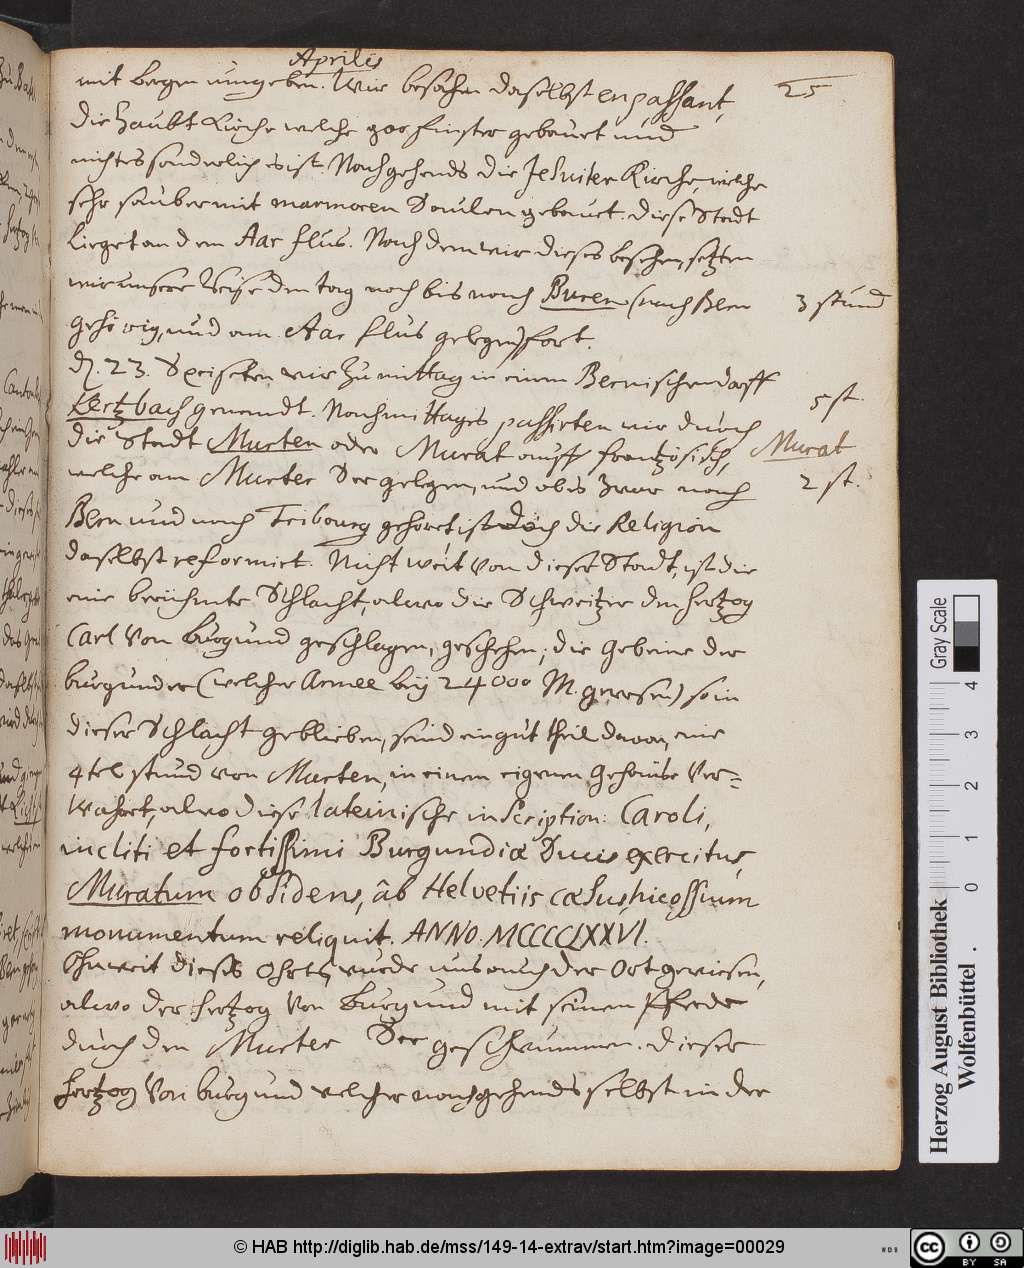 Aprilis
25
mit bergen umgeben. Wir besahen daselbst en passant,
die Haubt Kirche welche gar finster gebauet und
nichts sonderlich es ist. Nachgehends die Jesuiter Kirche, welche
sehr sauber mit marmoren Saulen gebauet. Diese Stadt
lieget an dem Aar flus. Nach dem wir dieses besehen, setzten
wir unsere Reise den tag noch bis nach Buren (nach Bern
3 stund
gehörig, und am Aar flus gelegen) fort.
d. 23. Speiseten wir zu mittag in einem Bernischen dorff
Kertzbach genendt. Nachmittages passirten wir durch
5 st.
die Stadt Murten oder Murat auff frantzösisch,
Murat
welche am Murter See gelegen, und ob es zwar nach
2 st.
Bern und nach Fribourg gehöret ist doch die Religion
daselbst reformirt. Nicht weit von dieser Stadt, ist die
eine berühmte Schlacht, alwo die Schweitzer den Hertzog
Carl von Burgund geschlagen, geschehen; die Gebeine der
burgunder (welcher Armee bey 24000 M. gewesen) so in
dieser Schlacht geblieben, seind ein gut theil davon, eine
4tel stund von Murten, in einem eigenen Gehäuse Ver=
wahret, alwo diese lateinische inscription: Caroli,
incliti et fortissimi Burgundiæ Ducis exercitus,
Muratum obsidens, ab Helvetiis cæsus, hic ossium
monumentum reliquit. ANNO. MCCCCLXXVI.
Ohnweit dieses Ohrts, wurde uns auch der Ort gewiesen,
alwo der Hertzog von Burgund mit seinem Pferde
durch den Murter See geschwummen. Dieser
Hertzog von burgund welcher nachgehends selbst in der
Gray Scale
0 1 2 3 4
Herzog August Bibliothek
Wolfenbüttel
© HAB http://diglib.hab.de/mss/149-14-extrav/start.htm?image=00029
cc BY SA